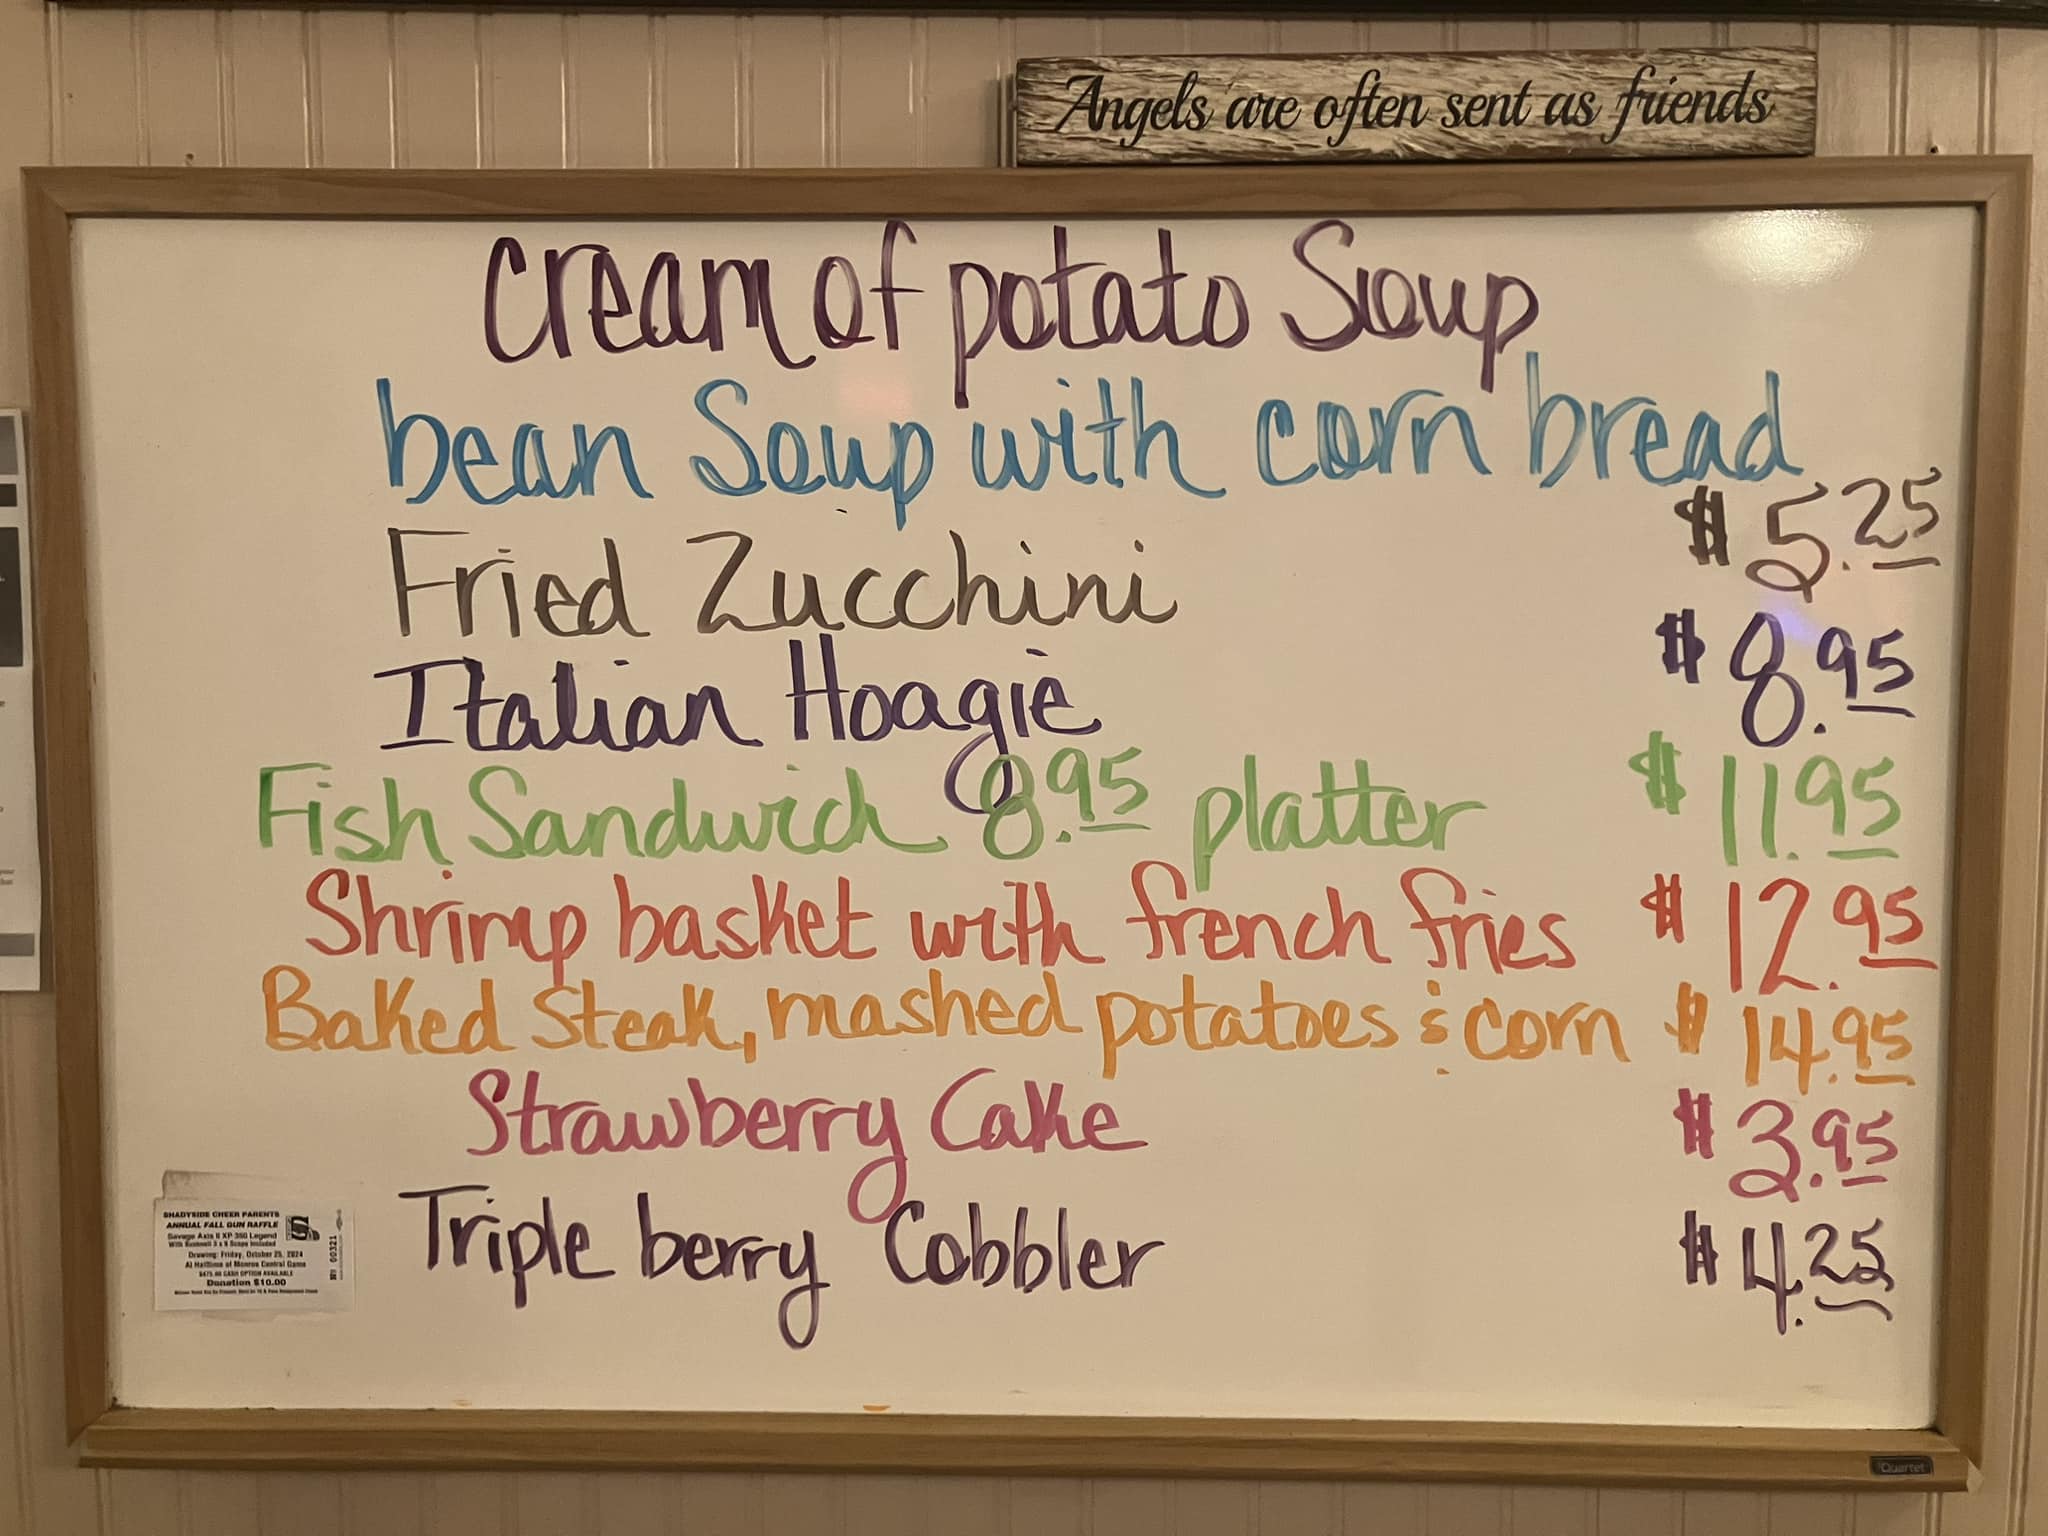 Angels are often sent as friends
cream of potato Soup
bean Soup with corn bread
Fried Zucchini $5.25
Italian Hoagie $8.95
Fish Sandwich 8.95 platter $11.95
Shrimp basket with french fries $12.95
Baked Steak, mashed potatoes & corn $14.95
Strawberry Cake $3.95
Triple berry Cobbler $4.25
SHADYSIDE CHEER PARENTS
ANNUAL FALL GUN RAFFLE
Savage Axis II XP 350 Legend
With Bushnell 3 x 9 Scope Included
Drawing: Friday, October 25, 2024
At Halftime of Monroe Central Game
$475.00 CASH OPTION AVAILABLE
Donation $10.00
00321
Quartet